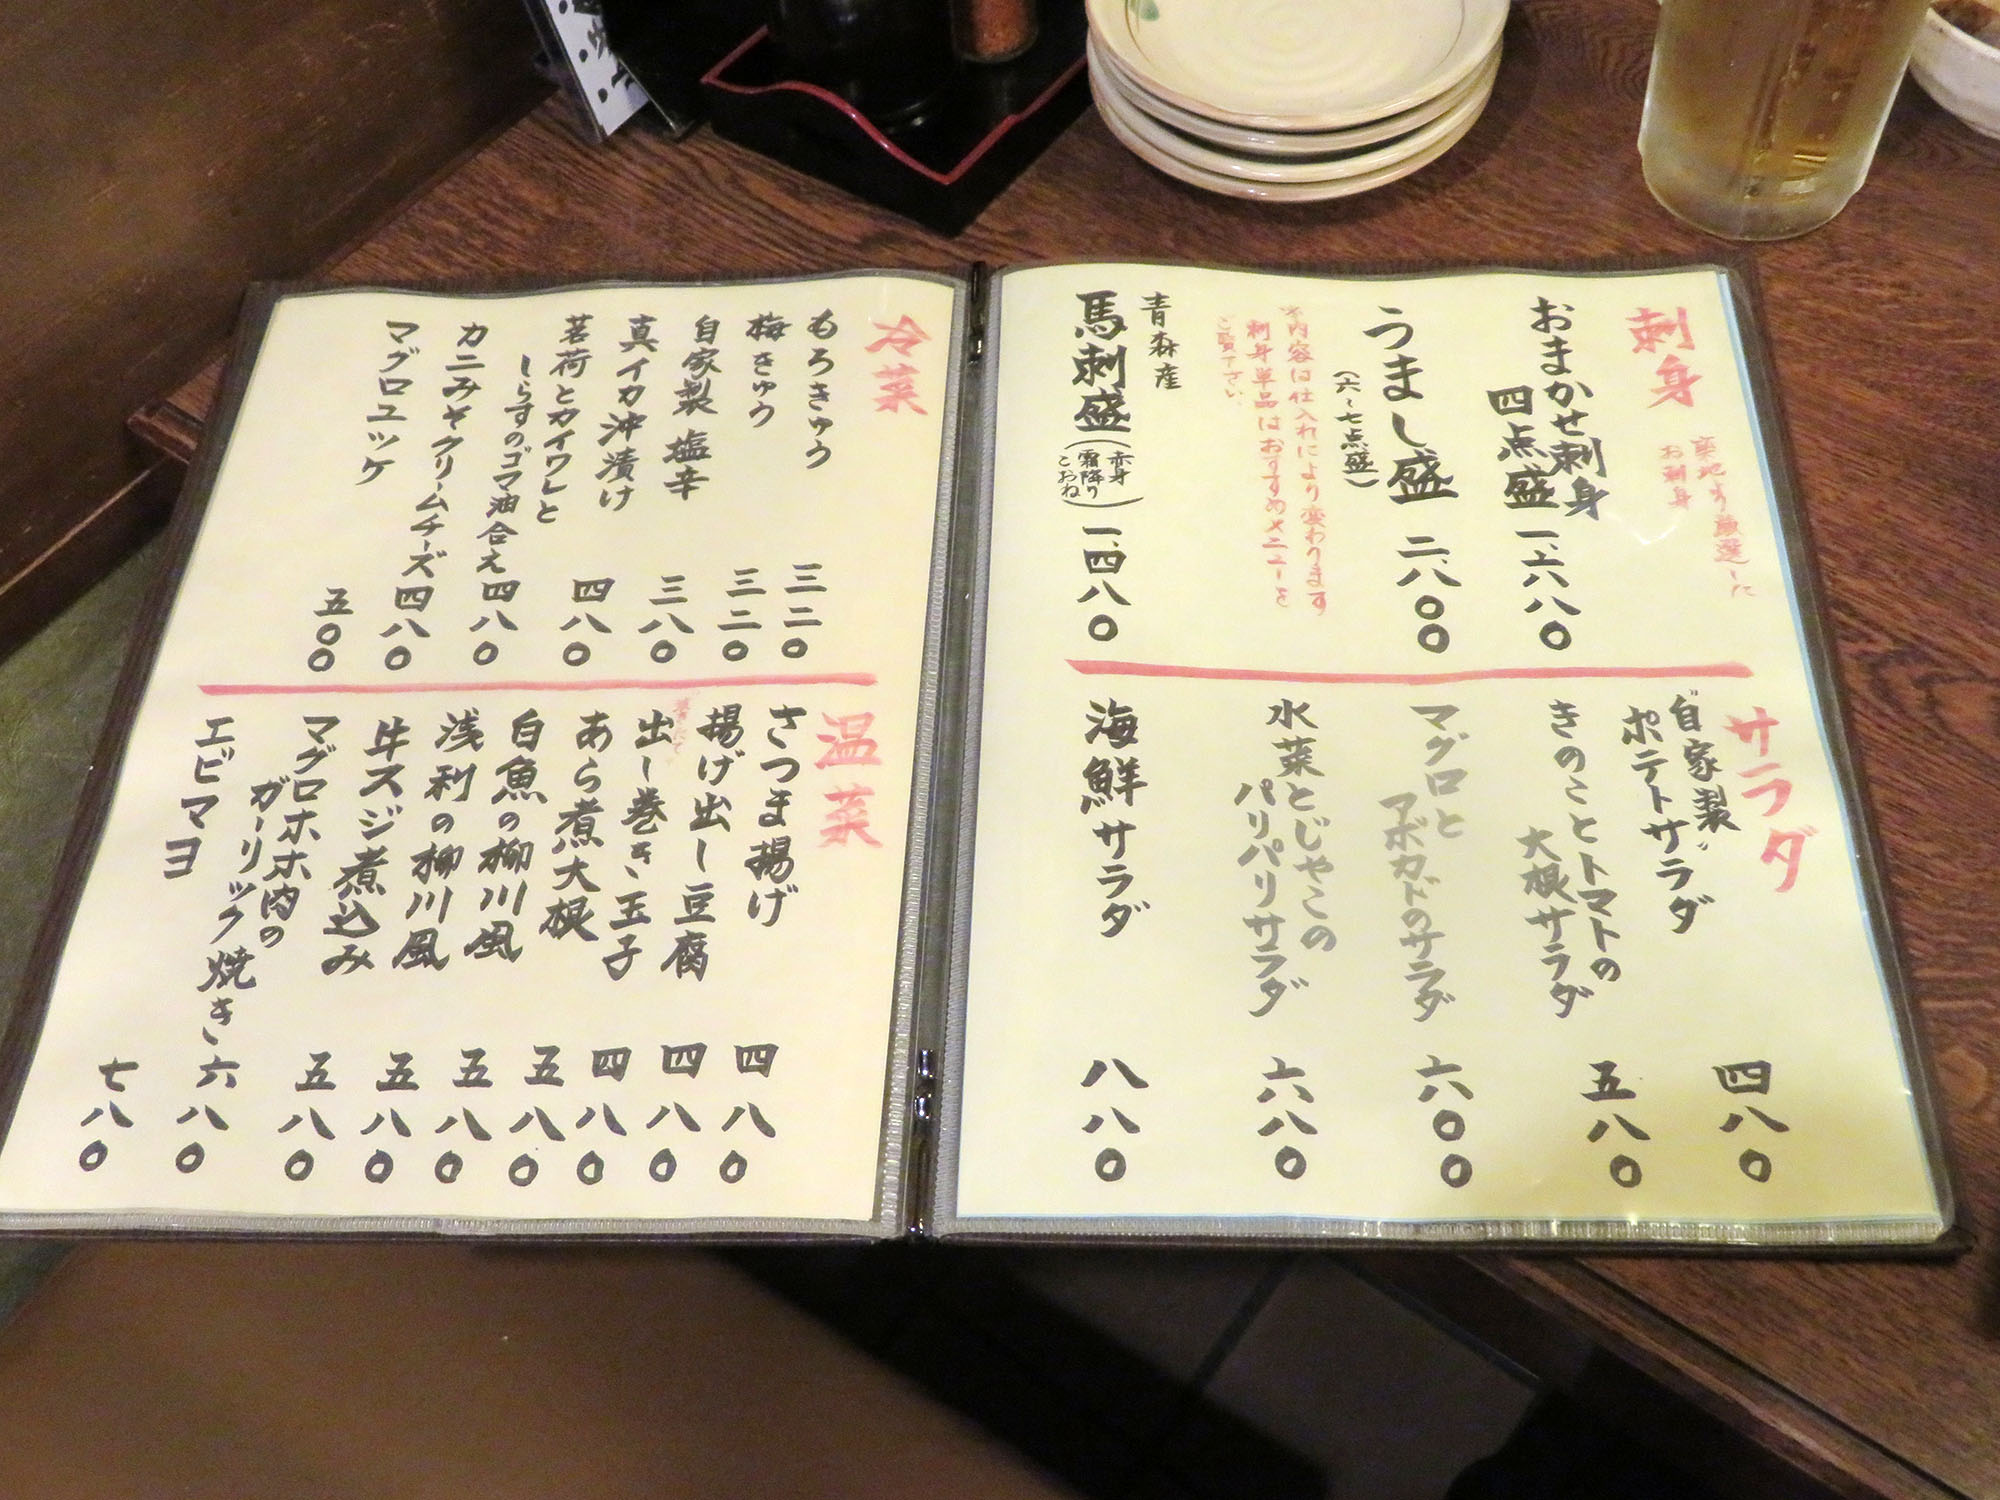 刺身
築地より厳選した
お刺身
おまかせ刺身
四点盛 一、六八〇
うまし盛 二、八〇〇
(六〜七点盛)
※内容は仕入れにより変わります
刺身単品はおすすめメニューを
ご覧下さい
青森産
馬刺盛(赤身 霜降り こおね) 一、四八〇
サラダ
〝自家製〟
ポテトサラダ 四八〇
きのことトマトの
大根サラダ 五八〇
マグロと
アボカドのサラダ 六〇〇
水菜とじゃこの
パリパリサラダ 六八〇
海鮮サラダ 八八〇
冷菜
もろきゅう 三二〇
梅きゅう 三二〇
自家製 塩辛 三八〇
真イカ沖漬け 四八〇
茗荷とカイワレと
しらすのゴマ油合え 四八〇
カニみそクリームチーズ 四八〇
マグロユッケ 五〇〇
温菜
さつま揚げ 四八〇
揚げ出し豆腐 四八〇
出し巻き玉子 四八〇
あら煮大根 五八〇
白魚の柳川風 五八〇
浅利の柳川風 五八〇
牛スジ煮込み 五八〇
マグロホホ肉の
ガーリック焼き 六八〇
エビマヨ 七八〇